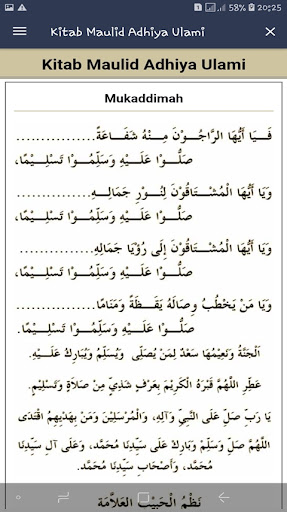 58% 20:25
Kitab Maulid Adhiya Ulami
Kitab Maulid Adhiya Ulami
Mukaddimah
فَــيَا أَيُّهَا الرَّاجُــوْنَ مِنْــهُ شَفَـاعَةً................
صَلُّــوْا عَلَــيْهِ وَسَلِّمُــوْا تَسْــلِيْــمًا،
وَيَا أَيُّهَا الْمُشْــتَاقُوْنَ لِنُــوْرِ جَمَالِــهِ...............
صَلُّــوْا عَلَــيْهِ وَسَلِّمُــوْا تَسْــلِيْــمًا،
وَيَا أَيُّهَا الْمُشْــتَاقُــوْنَ إِلَى رُؤْيَا جَمَالِهِ................
صَلُّــوْا عَلَــيْهِ وَسَلِّمُــوْا تَسْــلِيْــمًا،
وَيَا مَنْ يَخْطُبُ وِصَالَهُ يَقَــظَةً وَمَنَامًا................
صَلُّــوْا عَلَــيْهِ وَسَلِّمُــوْا تَسْــلِيْــمًا.
اَلْجَنَّةُ وَنَعِيْمُهَا سَعْدٌ لِمَنْ يُصَلِّى وَيُسَلِّمُ وَيُبَارِكُ عَلَــيْهِ.
عَطِّرِ اللَّهُمَّ قَبْرَهُ الْكَرِيْمَ بِعَرْفٍ شَذِيٍّ مِنْ صَلَاةٍ وَتَسْلِيْمٍ.
يَا رَبِّ صَلِّ عَلَى النَّبِيِّ وَآلِهِ، وَالْمُرْسَلِيْنَ وَمَنْ بِهَدْيِهِمُ اقْتَدَى
اَللَّهُمَّ صَلِّ وَسَلِّمْ وَبَارِكْ عَلَى سَيِّدِنَا مُحَمَّدٍ، وَعَلَى آلِ سَيِّدِنَا
مُحَمَّدٍ، وَأَصْحَابِ سَيِّدِنَا مُحَمَّدٍ.
نَظْمُ الْحَبِيْبِ الْعَلَّامَة